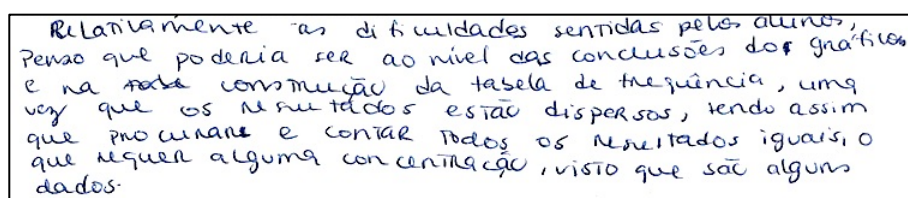 Relativamente as dificuldades sentidas pelos alunos,
Penso que poderia ser ao nível das conclusões dos gráficos
e na construção da tabela de frequência, uma
vez que os resultados estão dispersos, tendo assim
que procurar e contar todos os resultados iguais, o
que requer alguma concentração, visto que são alguns
dados.